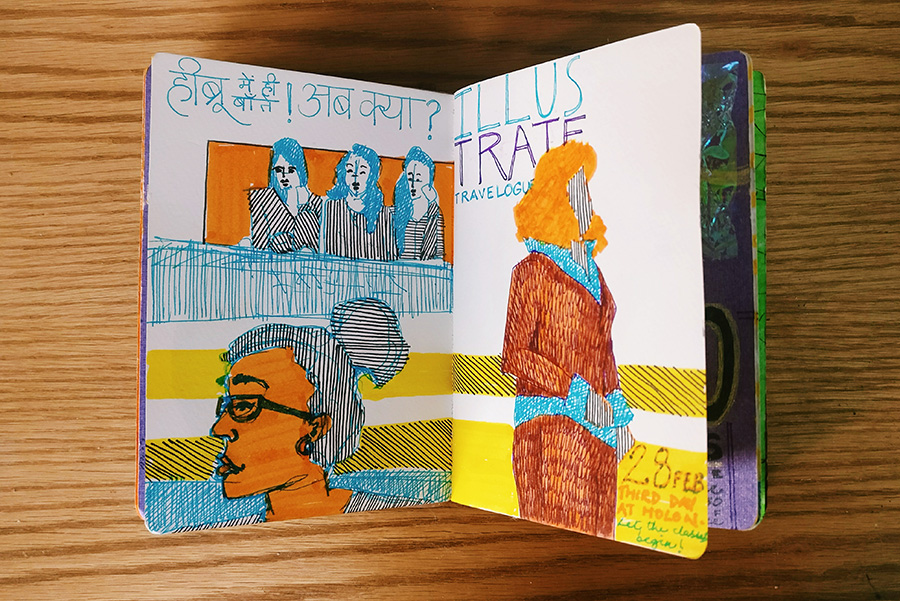 हीब्रू में ही बात ! अब क्या ?
ILLUS
TRATE
TRAVELOGUE
28 FEB
THIRD DAY
AT HOLON.
Let the classes
begin!